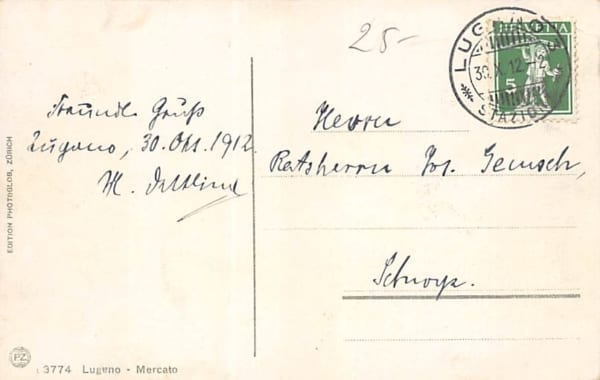 25-
LUGANO
30.X.12-2
STAZIONE
HELVETIA
5
Freundl. Gruß
Lugano, 30. Okt. 1912.
M.
Herrn
Ratsherrn Jos. Gemsch,
Schwyz.
EDITION PHOTOGLOB, ZÜRICH
PZ
3774 Lugano - Mercato